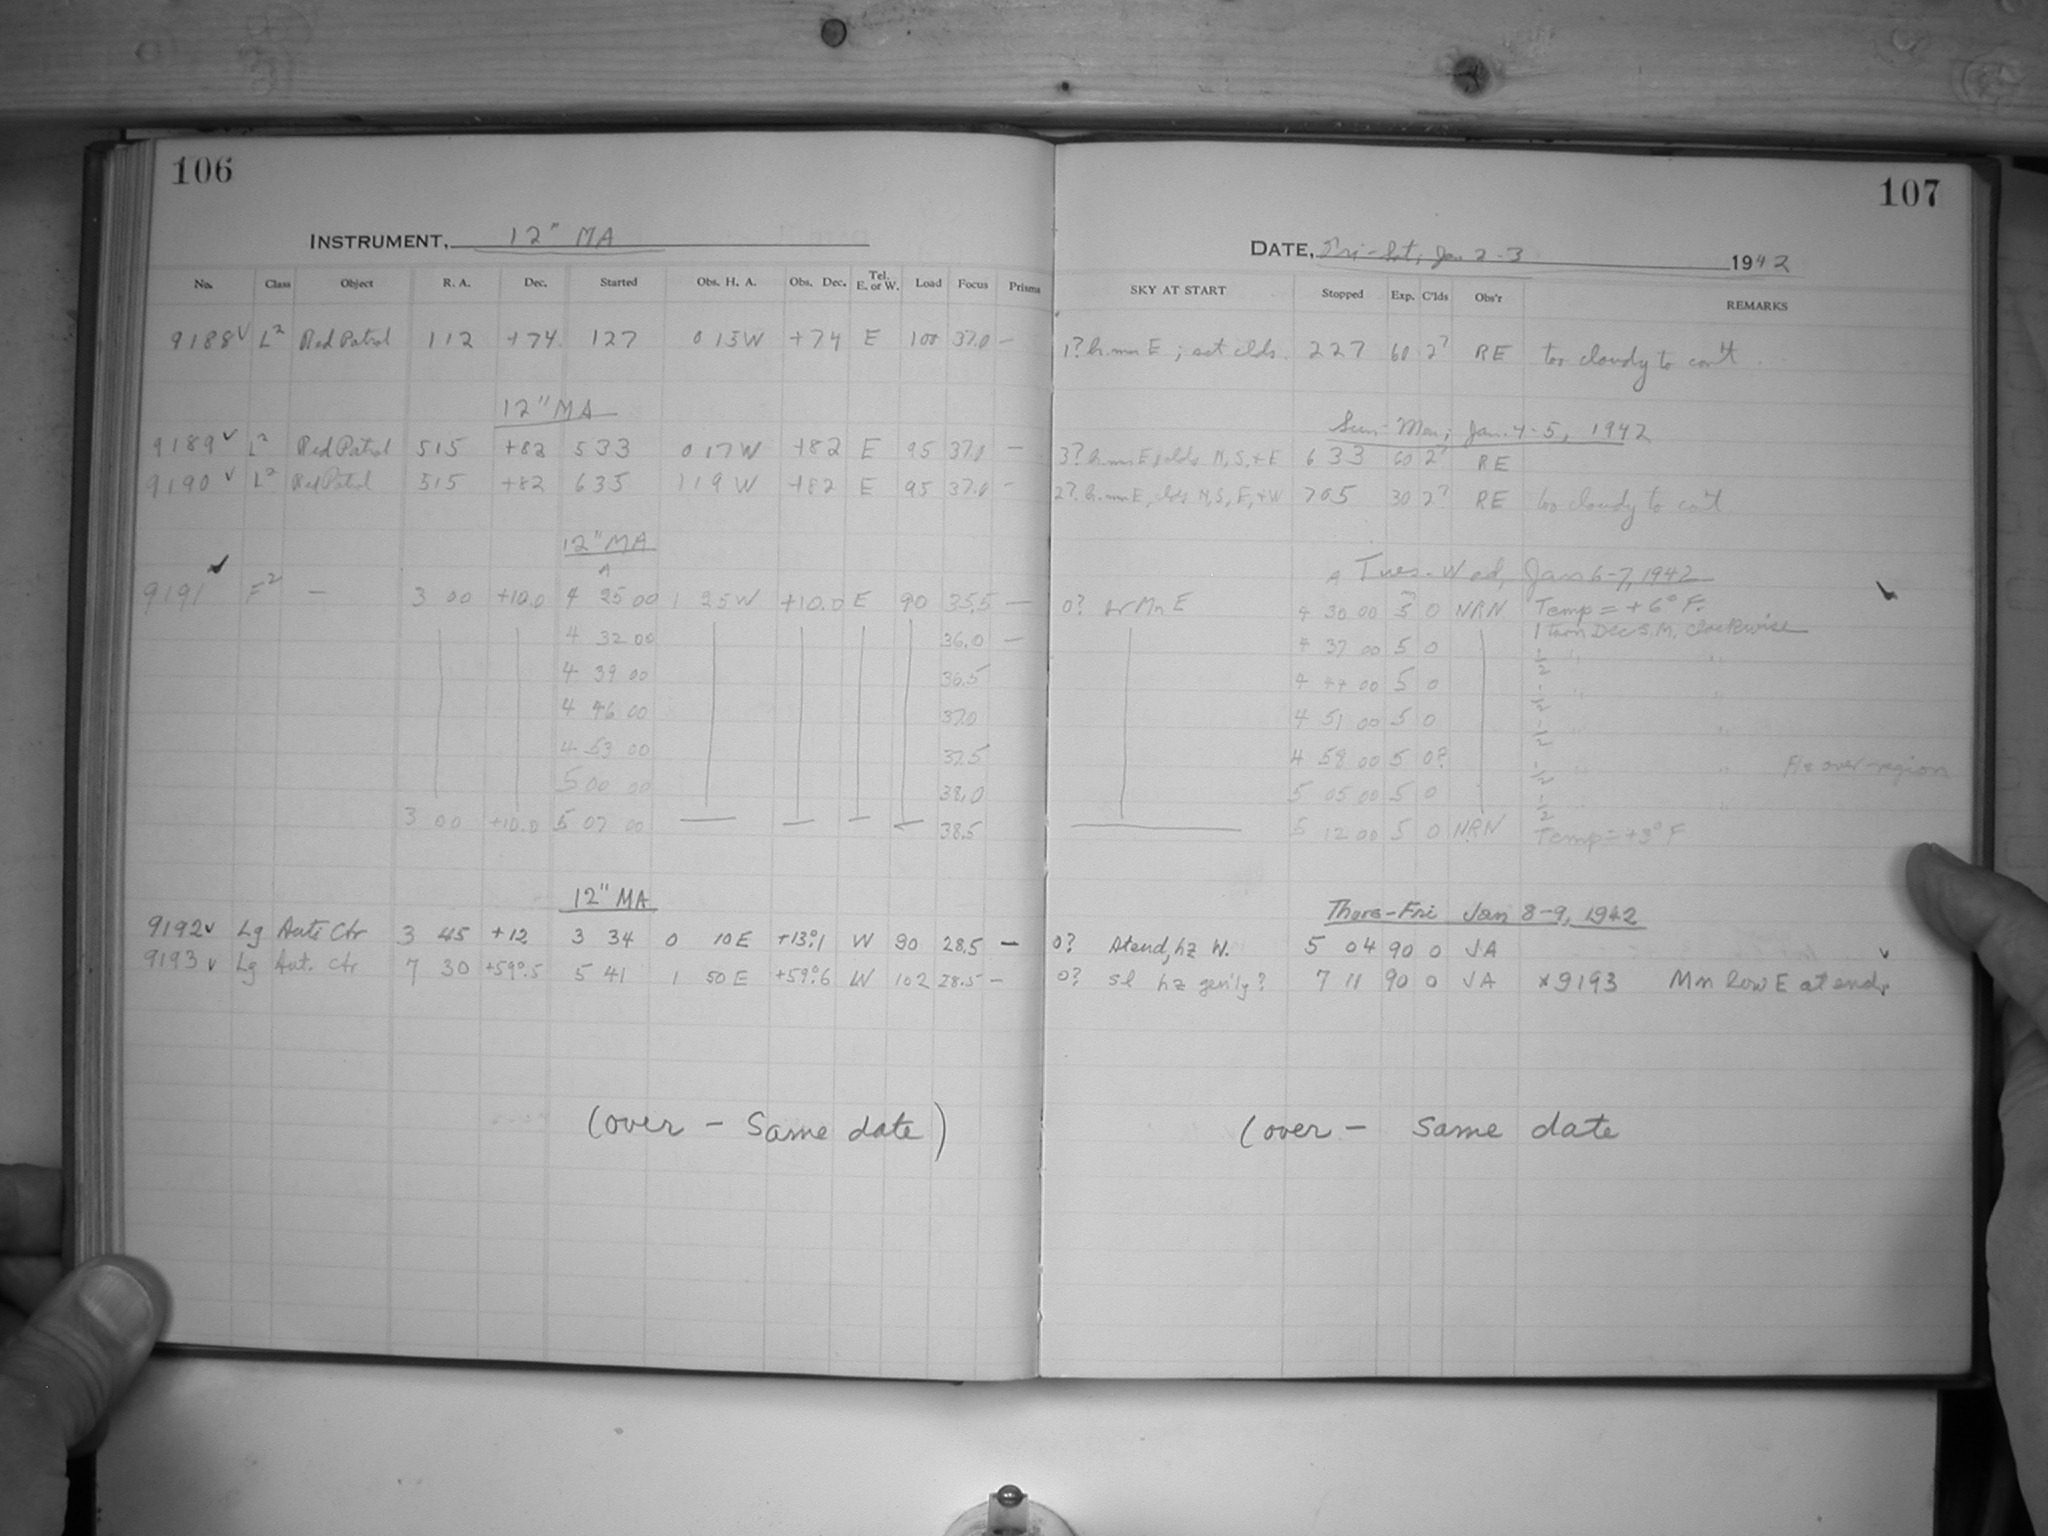 106
INSTRUMENT, 12" MA
No. Class Object R. A. Dec. Started Obs. H. A. Obs. Dec. Tel. E. or W. Load Focus Prisms
9188 ✓ L² Red Patrol 1 12 +74 1 27 0 15 W +74 E 100 37.0 —
12" MA
9189 ✓ L² Red Patrol 5 15 +82 5 33 0 17 W +82 E 95 37.0 —
9190 ✓ L² Red Patrol 5 15 +82 6 35 1 19 W +82 E 95 37.0 —
12" MA
A
9191 ✓ F² — 3 00 +10.0 4 25 00 1 25 W +10.0 E 90 35.5 —
4 32 00 36.0 —
4 39 00 36.5
4 46 00 37.0
4 53 00 37.5
5 00 00 38.0
3 00 +10.0 5 07 00 38.5
12" MA
9192 ✓ Lg Anti Ctr 3 45 +12 3 34 0 10 E +13°.1 W 90 28.5 —
9193 ✓ Lg Ant. Ctr 7 30 +59°.5 5 41 1 50 E +59°.6 W 102 28.5 —
(over – Same date)
107
DATE, Fri-Sat, Jan 2-3 1942
SKY AT START Stopped Exp. C'lds Obs'r REMARKS
1? br. mn E; sct clds. 2 27 60 2? RE too cloudy to con't
Sun-Mon, Jan. 4-5, 1942
3? br. mn E, clds N, S, + E 6 33 60 2? RE
2? br. mn E, clds N, S, E, + W 7 05 30 2? RE too cloudy to con't
A Tues-Wed, Jan 6-7, 1942
0? br Mn E 4 30 00 5 0 NRN Temp = +6° F.
1 turn Dec S.M. clockwise
4 37 00 5 0 ½ " "
4 44 00 5 0 ½ " "
4 51 00 5 0 ½ " "
4 58 00 5 0? ½ " " over region
5 05 00 5 0 ½ " "
5 12 00 5 0 NRN Temp = +3° F
Thurs-Fri Jan 8-9, 1942
0? At end, hz W. 5 04 90 0 JA
0? sl hz gen'ly? 7 11 90 0 JA × 9193 Mn low E at end.
(over – same date